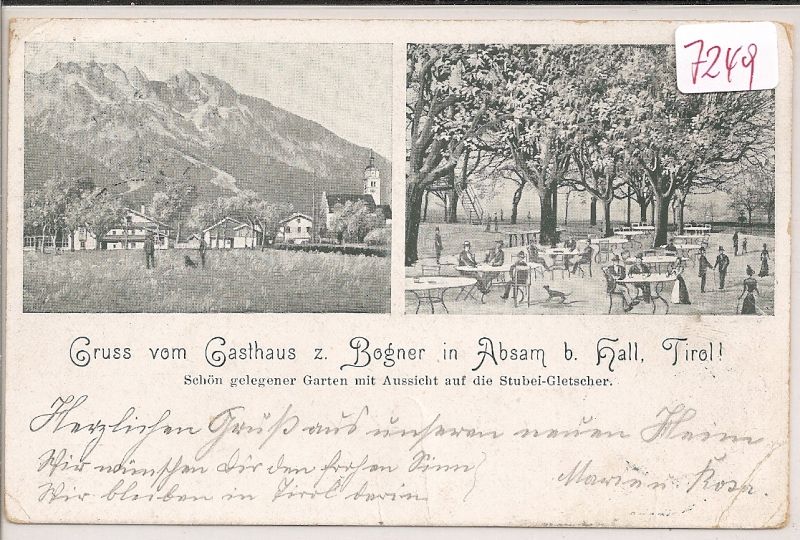 7249
Gruss vom Gasthaus z. Bogner in Absam b. Hall, Tirol!
Schön gelegener Garten mit Aussicht auf die Stubei-Gletscher.
Herzlichen Gruß aus unseren neuen Heim
Wir wünschen Dir den frohen Sinn
Wir bleiben in Tirol darin
Marie u. Rosa.